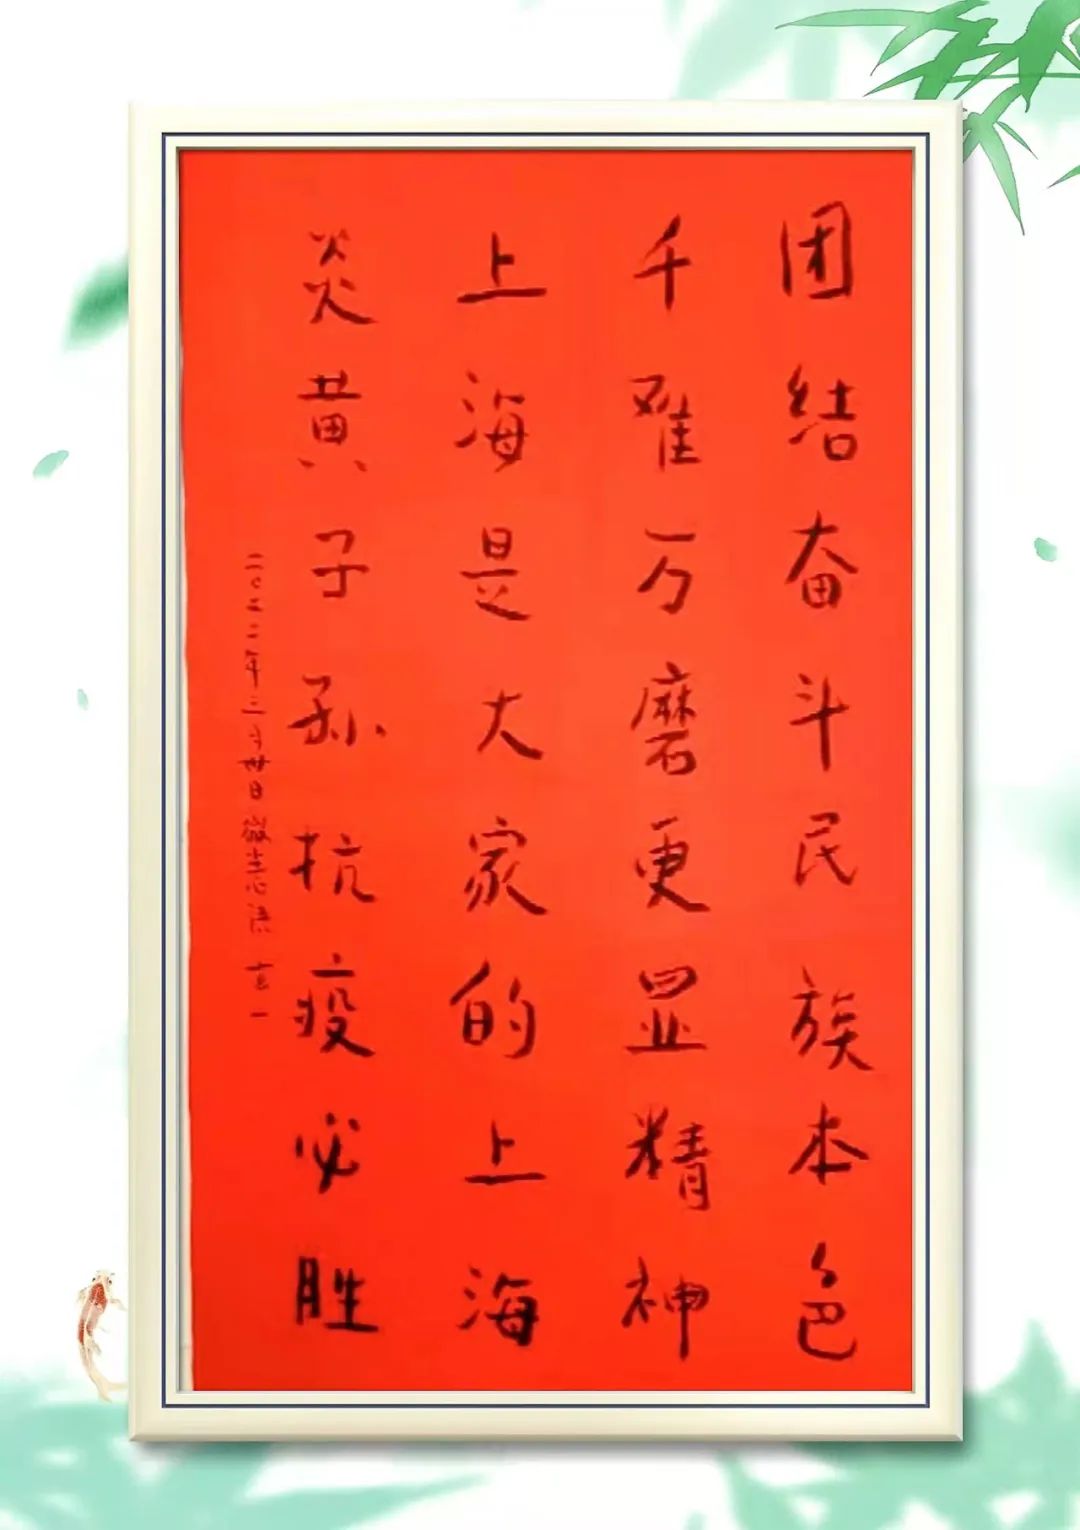 团结奋斗民族本色
千难万磨更显精神
上海是大家的上海
炎黄子孙抗疫必胜
二〇二二年三月卅日